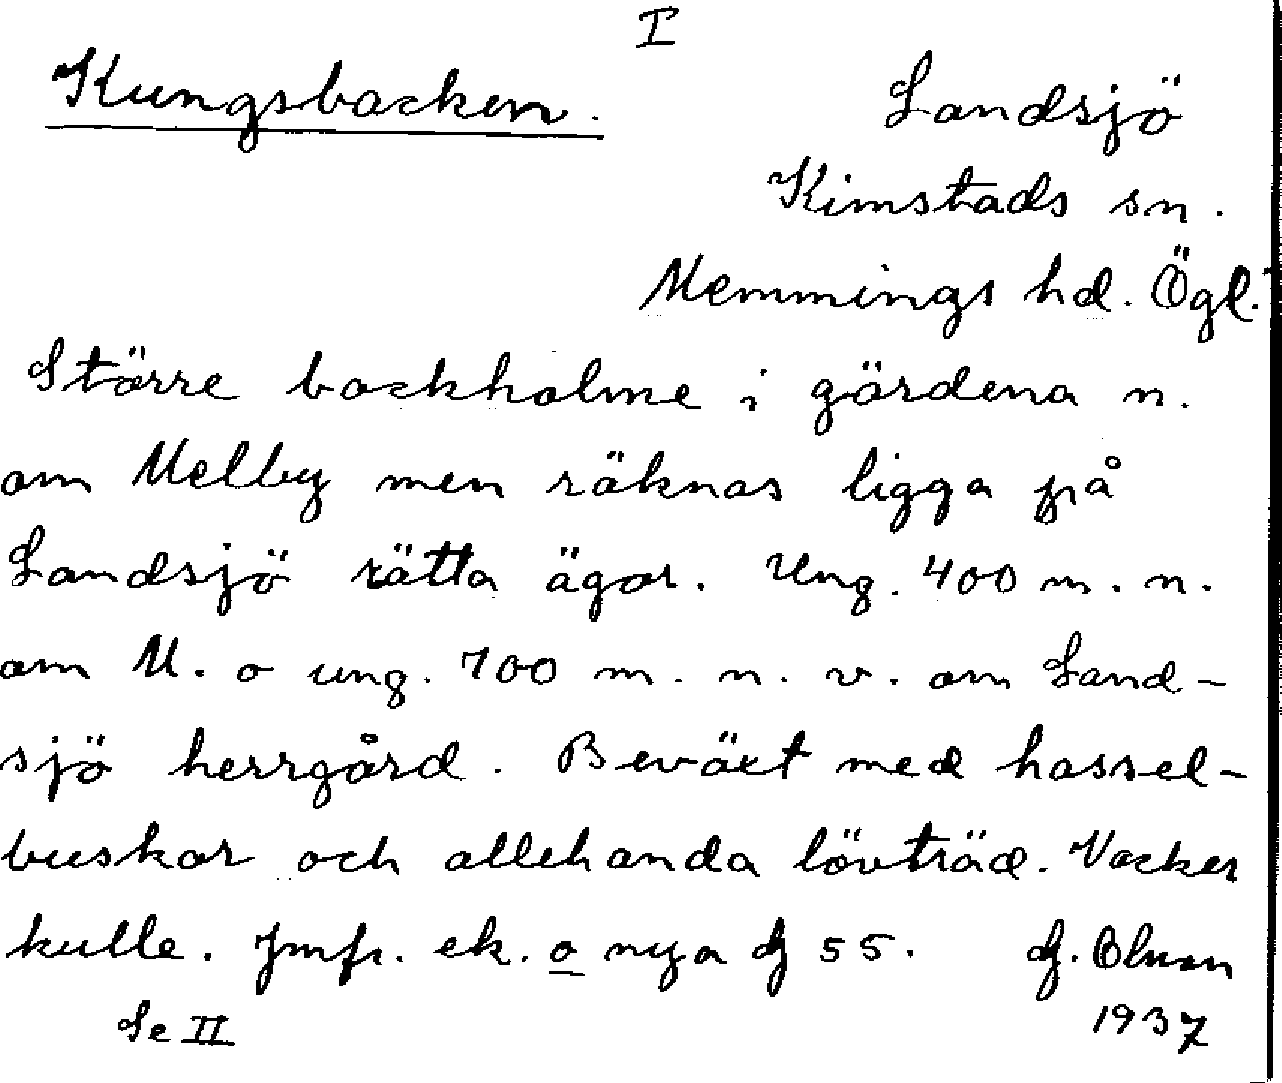 I
Kungsbacken.
Landsjö
Kimstads sn.
Memmings hd. Ögl.
Större backholme i gärdena n.
om Melby men räknas ligga på
Landsjö rätta ägor. Ung. 400 m. n.
om M. o ung. 700 m. n. v. om Land-
sjö herrgård. Beväxt med hassel-
buskar och allehanda lövträd. Vacker
kulle. Jmfr. ek. o nya 55.
Olsson
Se II
1937